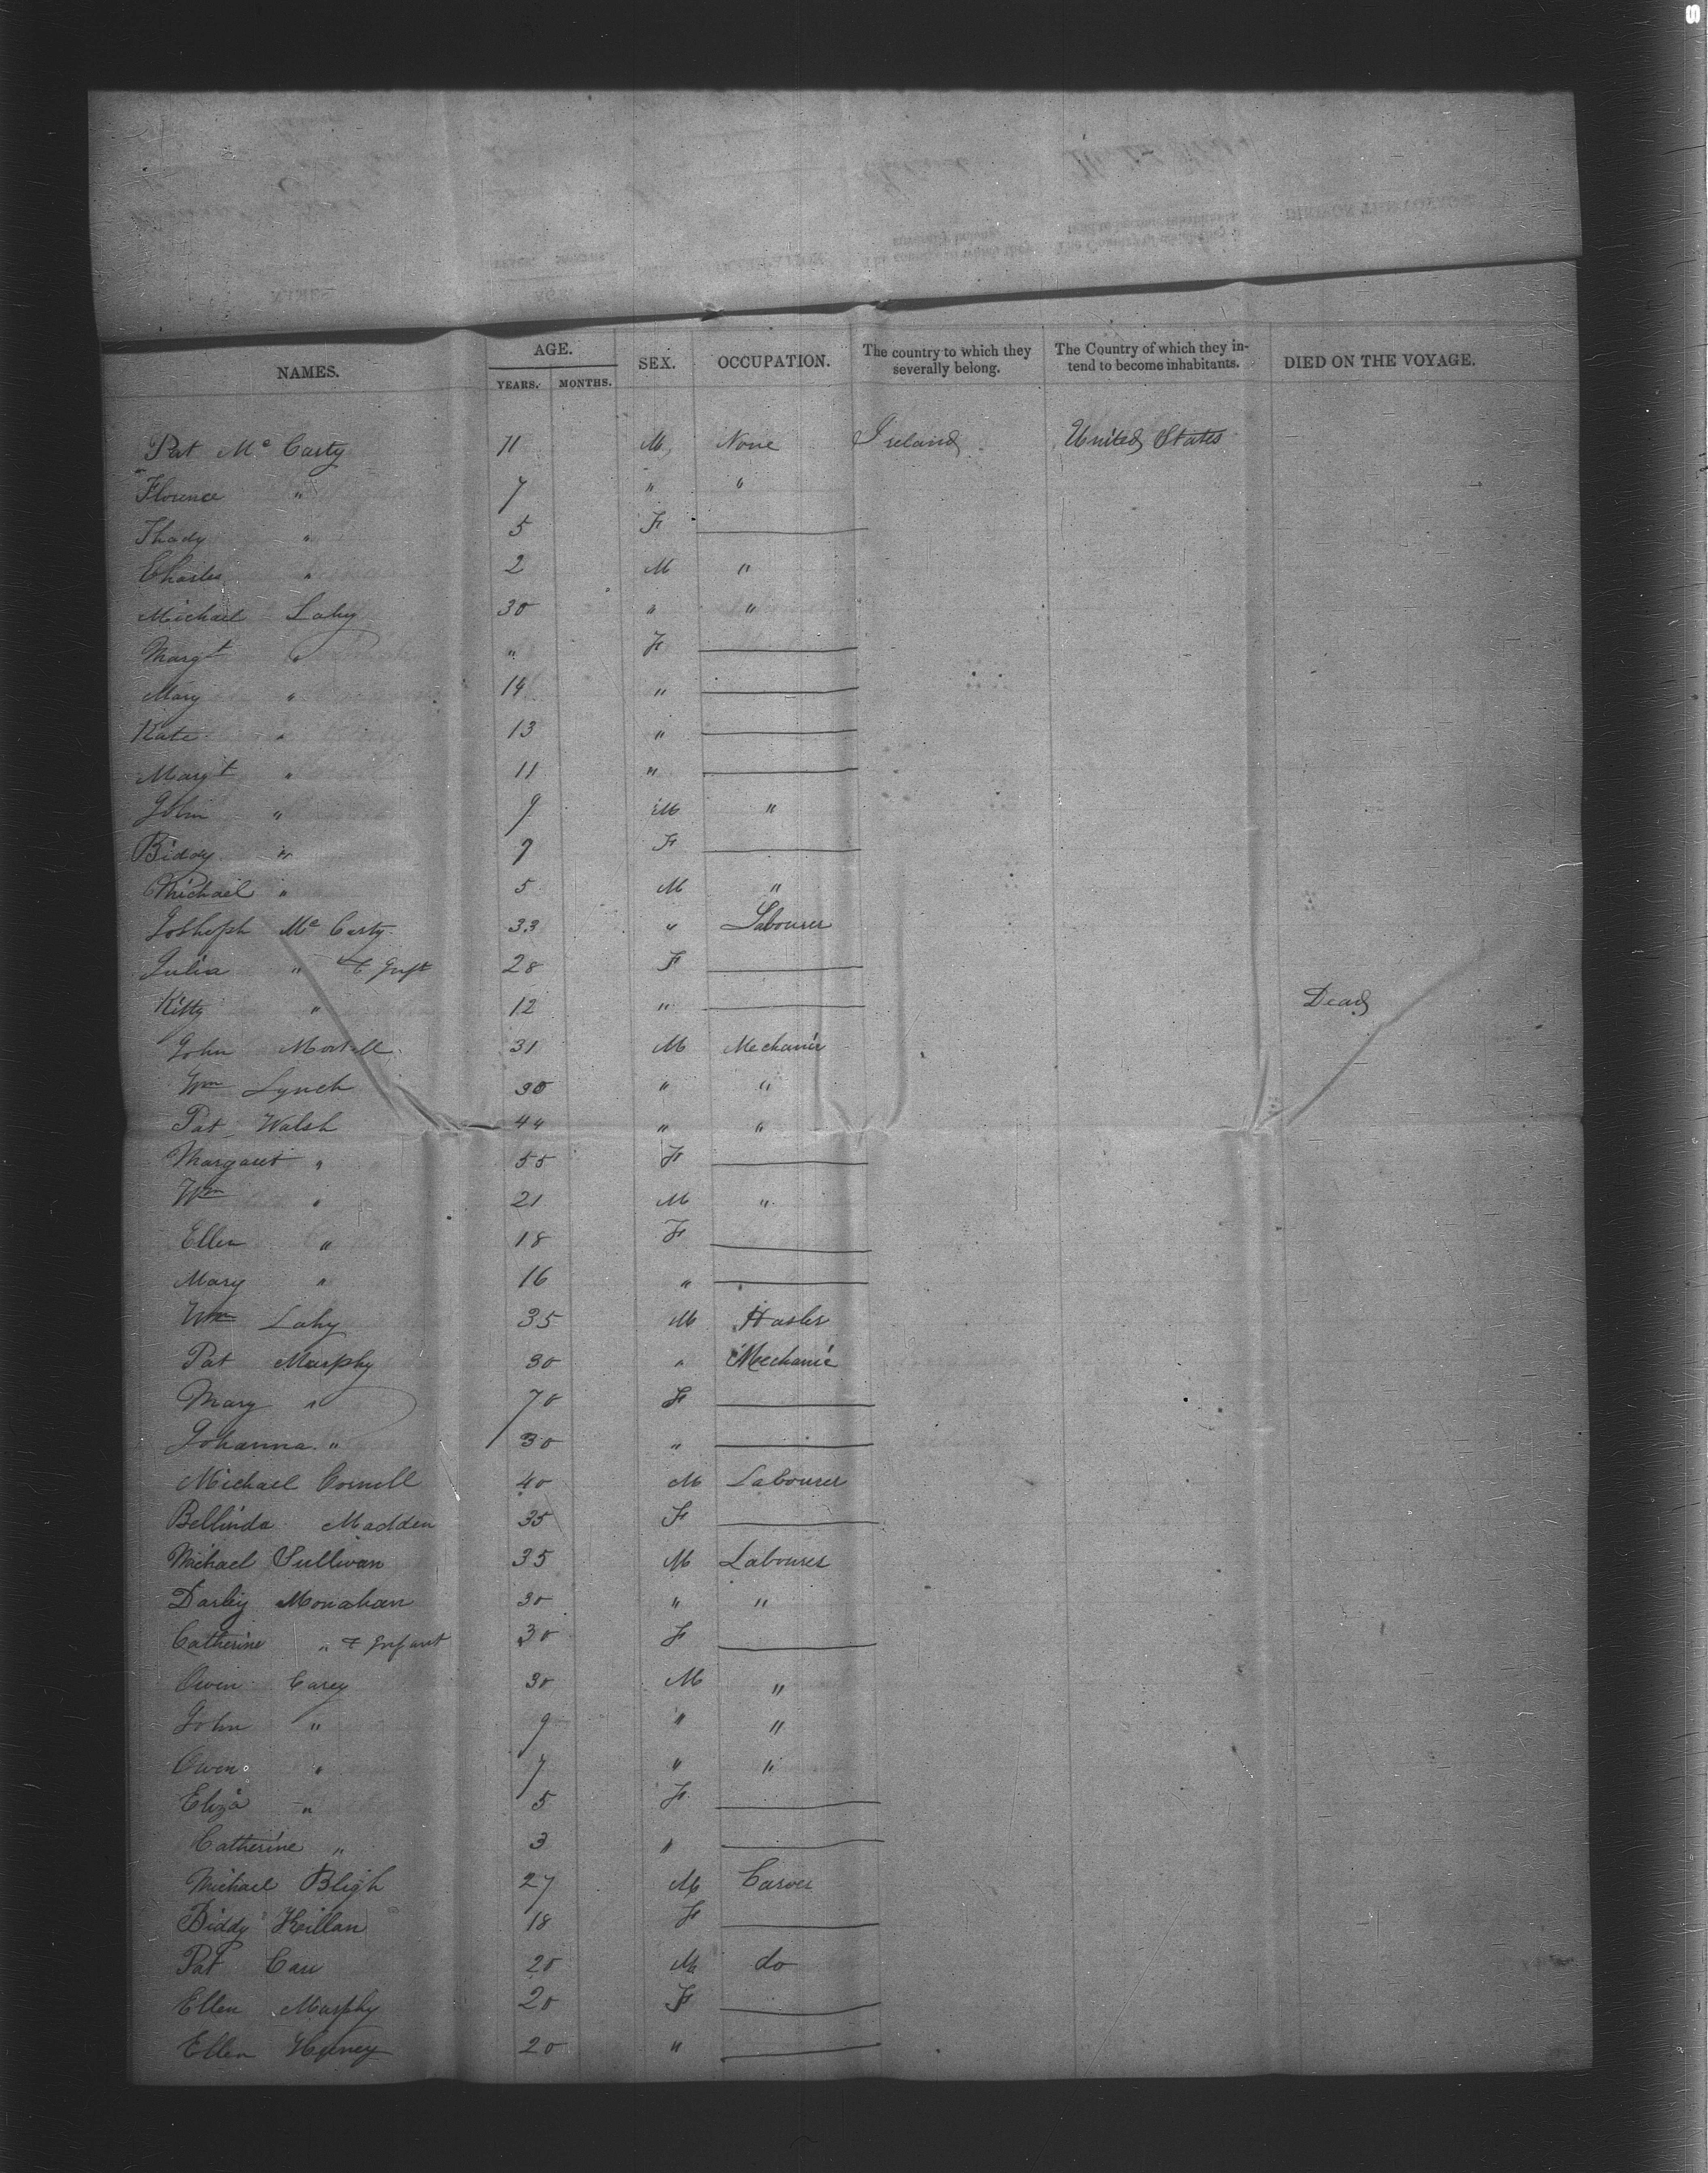 NAMES. AGE. YEARS. MONTHS. SEX. OCCUPATION. The country to which they severally belong. The Country of which they intend to become inhabitants. DIED ON THE VOYAGE.
Pat Mc Carty 11 M None Ireland United States
Florence " 7 " "
Thady " 5 F
Charles " 2 M "
Michael Lahy 30 " "
Margt " " F
Mary " 14 "
Kate " 13 "
Margt " 11 "
John " 9 M "
Biddy " 7 F
Michael " 5 M "
Josheph Mc Carty 33 " Labourer
Julia " & Inft 28 F
Kitty " 12 " Dead
John 31 M Mechanic
Wm Lynch 30 " "
Pat Walsh 44 " "
Margaret " 55 F
Wm " 21 M "
Ellen " 18 F
Mary " 16 "
Wm Lahy 35 M
Pat Murphy 30 " Mechanic
Mary " 70 F
Johanna " 30 "
Michael 40 M Labourer
Bellinda Madden 35 F
Michael Sullivan 35 M Labourer
Darley Monahan 30 " "
Catherine " & Infant 30 F
Owen Carey 30 M "
John " 9 " "
Owen " 7 " "
Eliza " 5 F
Catherine " 3 "
Michael Bligh 27 M Carver
Biddy Keillan 18 F
Pat Carr 20 M do
Ellen Murphy 20 F
Ellen 20 "